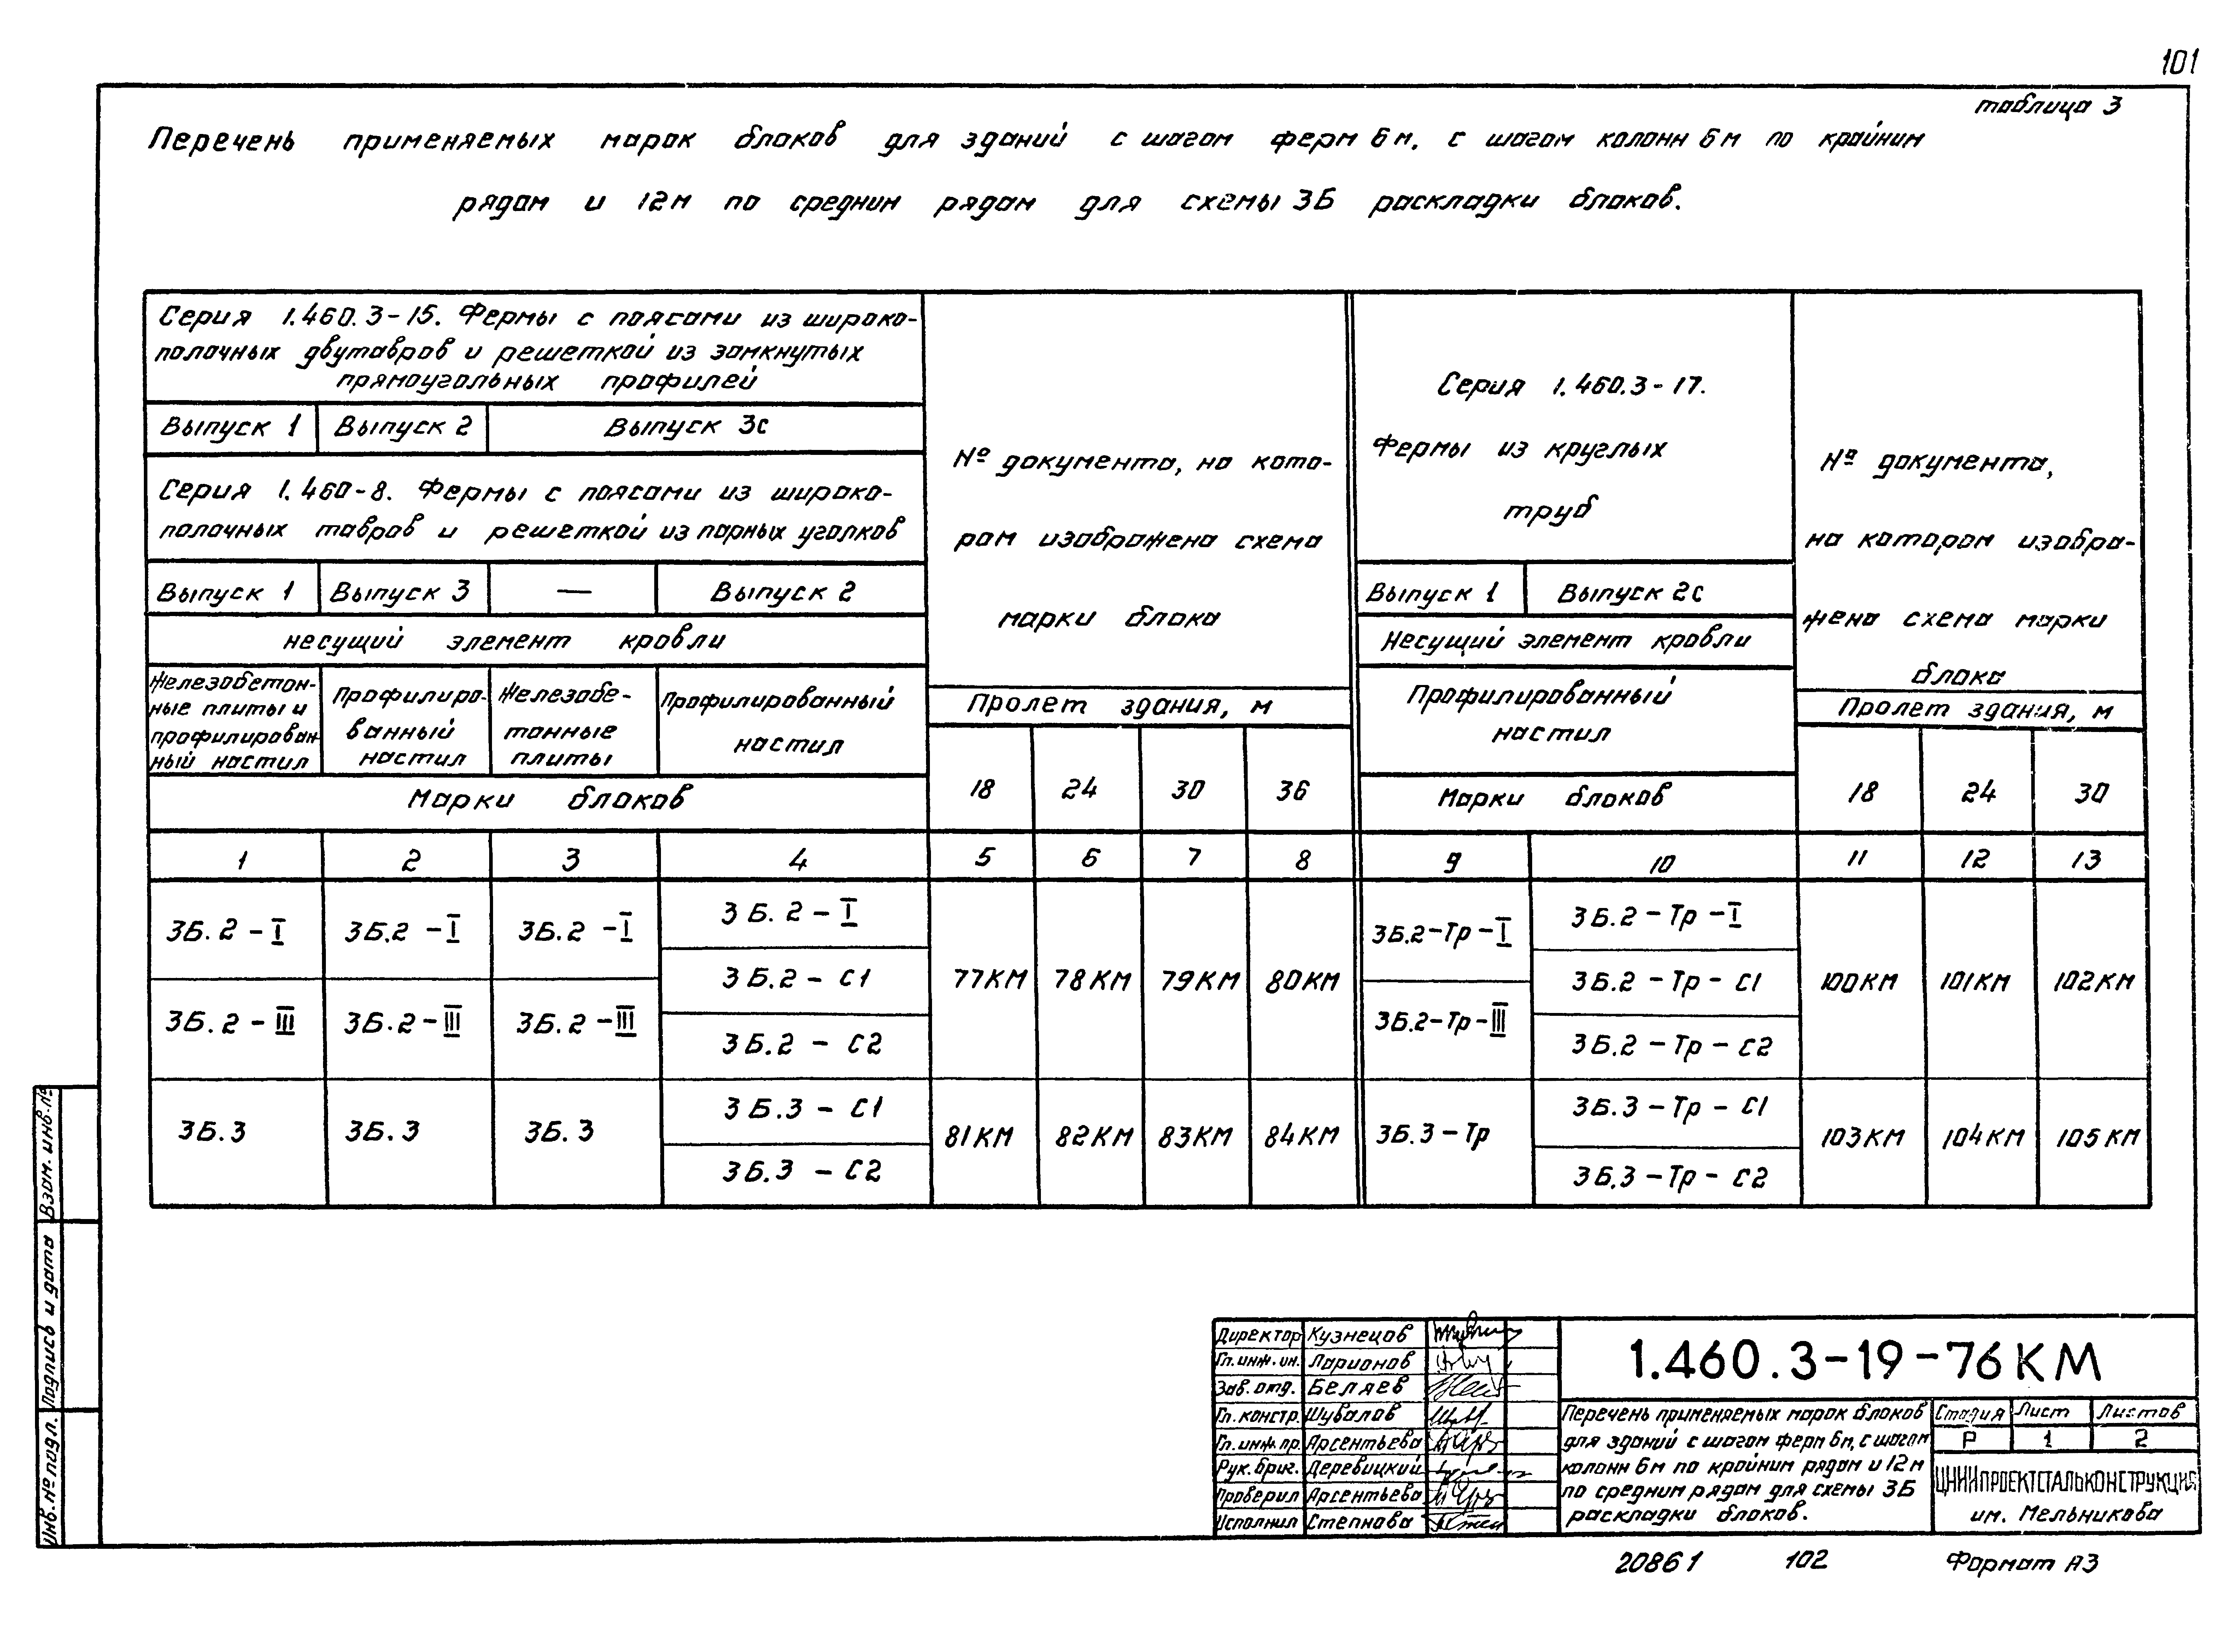 101
таблица 3
Перечень применяемых марок блоков для зданий с шагом ферм 6м, с шагом колонн 6м по крайним
рядам и 12м по средним рядам для схемы 3Б раскладки блоков.
Серия 1.460.3-15. Фермы с поясами из широко-
полочных двутавров и решеткой из замкнутых
прямоугольных профилей
Выпуск 1 Выпуск 2 Выпуск 3с
Серия 1.460-8. Фермы с поясами из широко-
полочных тавров и решеткой из парных уголков
Выпуск 1 Выпуск 3 — Выпуск 2
несущий элемент кровли
Железобетон-
ные плиты и
профилирован-
ный настил
Профилиро-
ванный
настил
Железобе-
тонные
плиты
Профилированный
настил
Марки блоков
№ документа, на кото-
ром изображена схема
марки блока
Пролет здания, м
18 24 30 36
Серия 1.460.3-17.
Фермы из круглых
труб
Выпуск 1 Выпуск 2с
Несущий элемент кровли
Профилированный
настил
Марки блоков
№ документа,
на котором изобра-
жена схема марки
блока
Пролет здания, м
18 24 30
1 2 3 4 5 6 7 8 9 10 11 12 13
3Б.2-I 3Б.2-I 3Б.2-I 3Б.2-I
3Б.2-С1
3Б.2-III 3Б.2-III 3Б.2-III
3Б.2-С2
77КМ 78КМ 79КМ 80КМ
3Б.2-Тр-I
3Б.2-Тр-III
3Б.2-Тр-I
3Б.2-Тр-С1
3Б.2-Тр-С2
100КМ 101КМ 102КМ
3Б.3 3Б.3 3Б.3
3Б.3-С1
3Б.3-С2
81КМ 82КМ 83КМ 84КМ
3Б.3-Тр
3Б.3-Тр-С1
3Б.3-Тр-С2
103КМ 104КМ 105КМ
Взам. инв.№
Подпись и дата
Инв.№подл.
Директор Кузнецов
Гл. инж. ин. Ларионов
Зав. отд. Беляев
Гл. констр. Шувалов
Гл. инж. пр. Арсентьева
Рук. бриг. Деревицкий
Проверил Арсентьева
Исполнил Степнова
1.460.3-19-76КМ
Перечень применяемых марок блоков
для зданий с шагом ферм 6м, с шагом
колонн 6м по крайним рядам и 12м
по средним рядам для схемы 3Б
раскладки блоков.
Стадия Лист Листов
Р 1 2
ЦНИИПРОЕКТСТАЛЬКОНСТРУКЦИЯ
им. Мельникова
20861 102 Формат А3